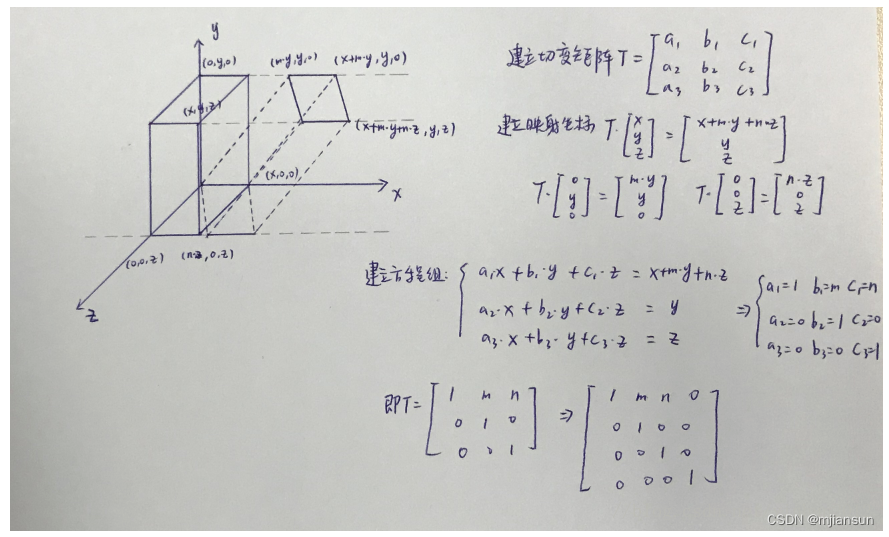 y
(0,y,0)
(m·y,y,0)
(x+m·y,y,0)
(x,y,z)
(x+m·y+n·z,y,z)
(x,0,0)
x
(0,0,z)
(n·z,0,z)
z
建立切变矩阵 T = [a₁ b₁ c₁
a₂ b₂ c₂
a₃ b₃ c₃]
建立映射坐标 T·[x y z] = [x+m·y+n·z
y
z]
T·[0 y 0] = [m·y y 0] T·[0 0 z] = [n·z 0 z]
建立方程组: { a₁x + b₁·y + c₁·z = x+m·y+n·z
a₂·x + b₂·y + c₂·z = y
a₃·x + b₃·y + c₃·z = z
⇒ { a₁=1 b₁=m c₁=n
a₂=0 b₂=1 c₂=0
a₃=0 b₃=0 c₃=1
即T= [1 m n
0 1 0
0 0 1]
⇒ [1 m n 0
0 1 0 0
0 0 1 0
0 0 0 1]
CSDN @mjiansun